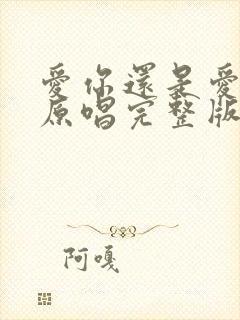 愛你還是愛
原唱完整版
阿嘎